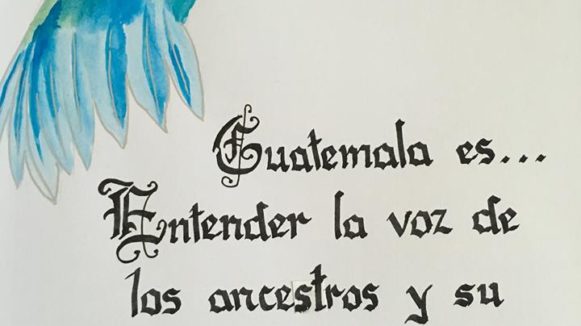 Guatemala es...
Entender la voz de
los ancestros y su